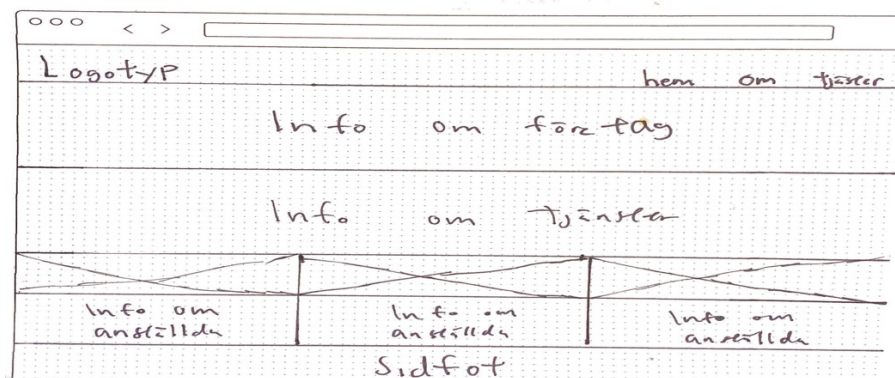 Logotyp
hem om tjäster
Info om företag
Info om tjänster
Info om Info om Info om
anställda anställda anställda
Sidfot